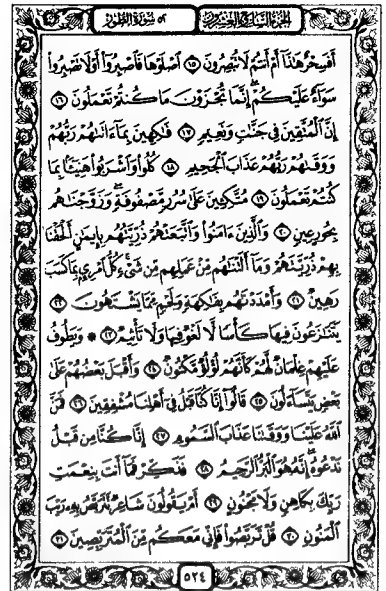 الجزء السابع والعشرون ٥٢ سورة الطور
أَفَسِحْرٌ هَٰذَآ أَمْ أَنتُمْ لَا تُبْصِرُونَ ١٥ ٱصْلَوْهَا فَٱصْبِرُوٓا۟ أَوْ لَا تَصْبِرُوا۟
سَوَآءٌ عَلَيْكُمْ ۖ إِنَّمَا تُجْزَوْنَ مَا كُنتُمْ تَعْمَلُونَ ١٦
إِنَّ ٱلْمُتَّقِينَ فِى جَنَّٰتٍ وَنَعِيمٍ ١٧ فَٰكِهِينَ بِمَآ ءَاتَىٰهُمْ رَبُّهُمْ
وَوَقَىٰهُمْ رَبُّهُمْ عَذَابَ ٱلْجَحِيمِ ١٨ كُلُوا۟ وَٱشْرَبُوا۟ هَنِيٓـًٔۢا بِمَا
كُنتُمْ تَعْمَلُونَ ١٩ مُتَّكِـِٔينَ عَلَىٰ سُرُرٍ مَّصْفُوفَةٍ ۖ وَزَوَّجْنَٰهُم
بِحُورٍ عِينٍ ٢٠ وَٱلَّذِينَ ءَامَنُوا۟ وَٱتَّبَعَتْهُمْ ذُرِّيَّتُهُم بِإِيمَٰنٍ أَلْحَقْنَا
بِهِمْ ذُرِّيَّتَهُمْ وَمَآ أَلَتْنَٰهُم مِّنْ عَمَلِهِم مِّن شَىْءٍ ۚ كُلُّ ٱمْرِئٍۭ بِمَا كَسَبَ
رَهِينٌ ٢١ وَأَمْدَدْنَٰهُم بِفَٰكِهَةٍ وَلَحْمٍ مِّمَّا يَشْتَهُونَ ٢٢
يَتَنَٰزَعُونَ فِيهَا كَأْسًا لَّا لَغْوٌ فِيهَا وَلَا تَأْثِيمٌ ٢٣ ۞ وَيَطُوفُ
عَلَيْهِمْ غِلْمَانٌ لَّهُمْ كَأَنَّهُمْ لُؤْلُؤٌ مَّكْنُونٌ ٢٤ وَأَقْبَلَ بَعْضُهُمْ عَلَىٰ
بَعْضٍ يَتَسَآءَلُونَ ٢٥ قَالُوٓا۟ إِنَّا كُنَّا قَبْلُ فِىٓ أَهْلِنَا مُشْفِقِينَ ٢٦ فَمَنَّ
ٱللَّهُ عَلَيْنَا وَوَقَىٰنَا عَذَابَ ٱلسَّمُومِ ٢٧ إِنَّا كُنَّا مِن قَبْلُ
نَدْعُوهُ ۖ إِنَّهُۥ هُوَ ٱلْبَرُّ ٱلرَّحِيمُ ٢٨ فَذَكِّرْ فَمَآ أَنتَ بِنِعْمَتِ
رَبِّكَ بِكَاهِنٍ وَلَا مَجْنُونٍ ٢٩ أَمْ يَقُولُونَ شَاعِرٌ نَّتَرَبَّصُ بِهِۦ رَيْبَ
ٱلْمَنُونِ ٣٠ قُلْ تَرَبَّصُوا۟ فَإِنِّى مَعَكُم مِّنَ ٱلْمُتَرَبِّصِينَ ٣١
٥٢٤